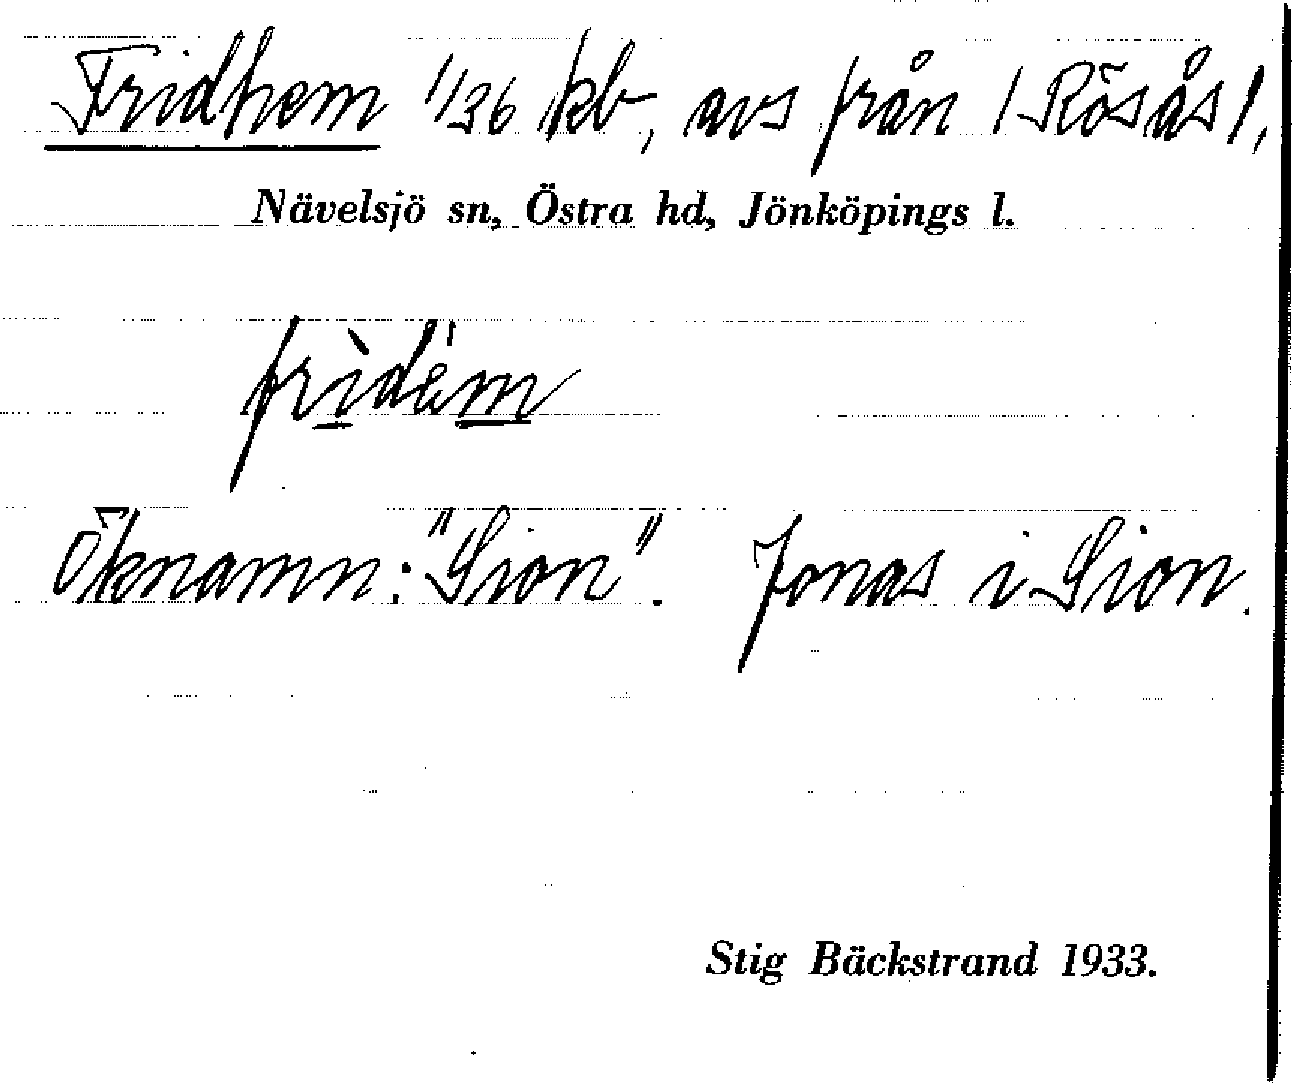 Fridhem 1/36 kb, avs från /Rösås/,
Nävelsjö sn, Östra hd, Jönköpings l.
frìdém
Öknamn: "Sion". Jonas i Sion.
Stig Bäckstrand 1933.